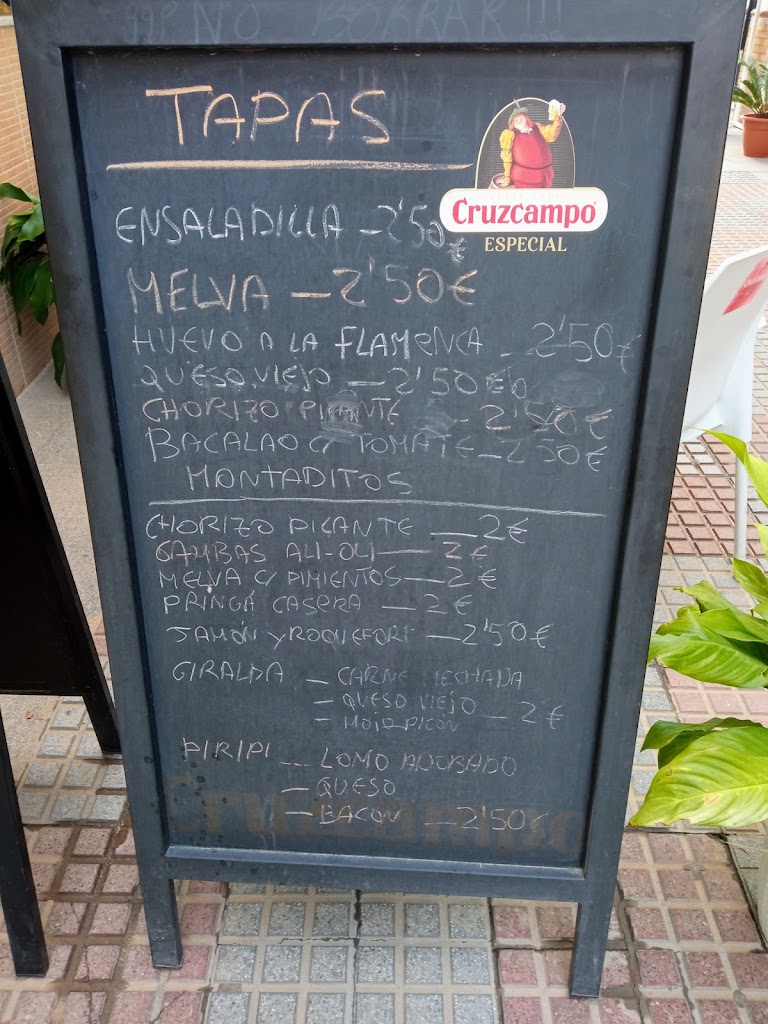 NO BORRAR!!!
TAPAS
Cruzcampo
ESPECIAL
ENSALADILLA - 2'50 €
MELVA - 2'50 €
HUEVO A LA FLAMENCA - 2'50 €
QUESO VIEJO - 2'50 €
CHORIZO PICANTE - 2'50 €
BACALAO C/ TOMATE - 2'50 €
MONTADITOS
CHORIZO PICANTE - 2 €
GAMBAS ALI-OLI - 2 €
MELVA C/ PIMIENTOS - 2 €
PRINGÁ CASERA - 2 €
JAMÓN Y ROQUEFORT - 2'50 €
GIRALDA - CARNE MECHADA
- QUESO VIEJO
- MOJO PICÓN - 2 €
PIRIPI - LOMO ADOBADO
- QUESO
- BACON - 2'50 €
Cruzcampo